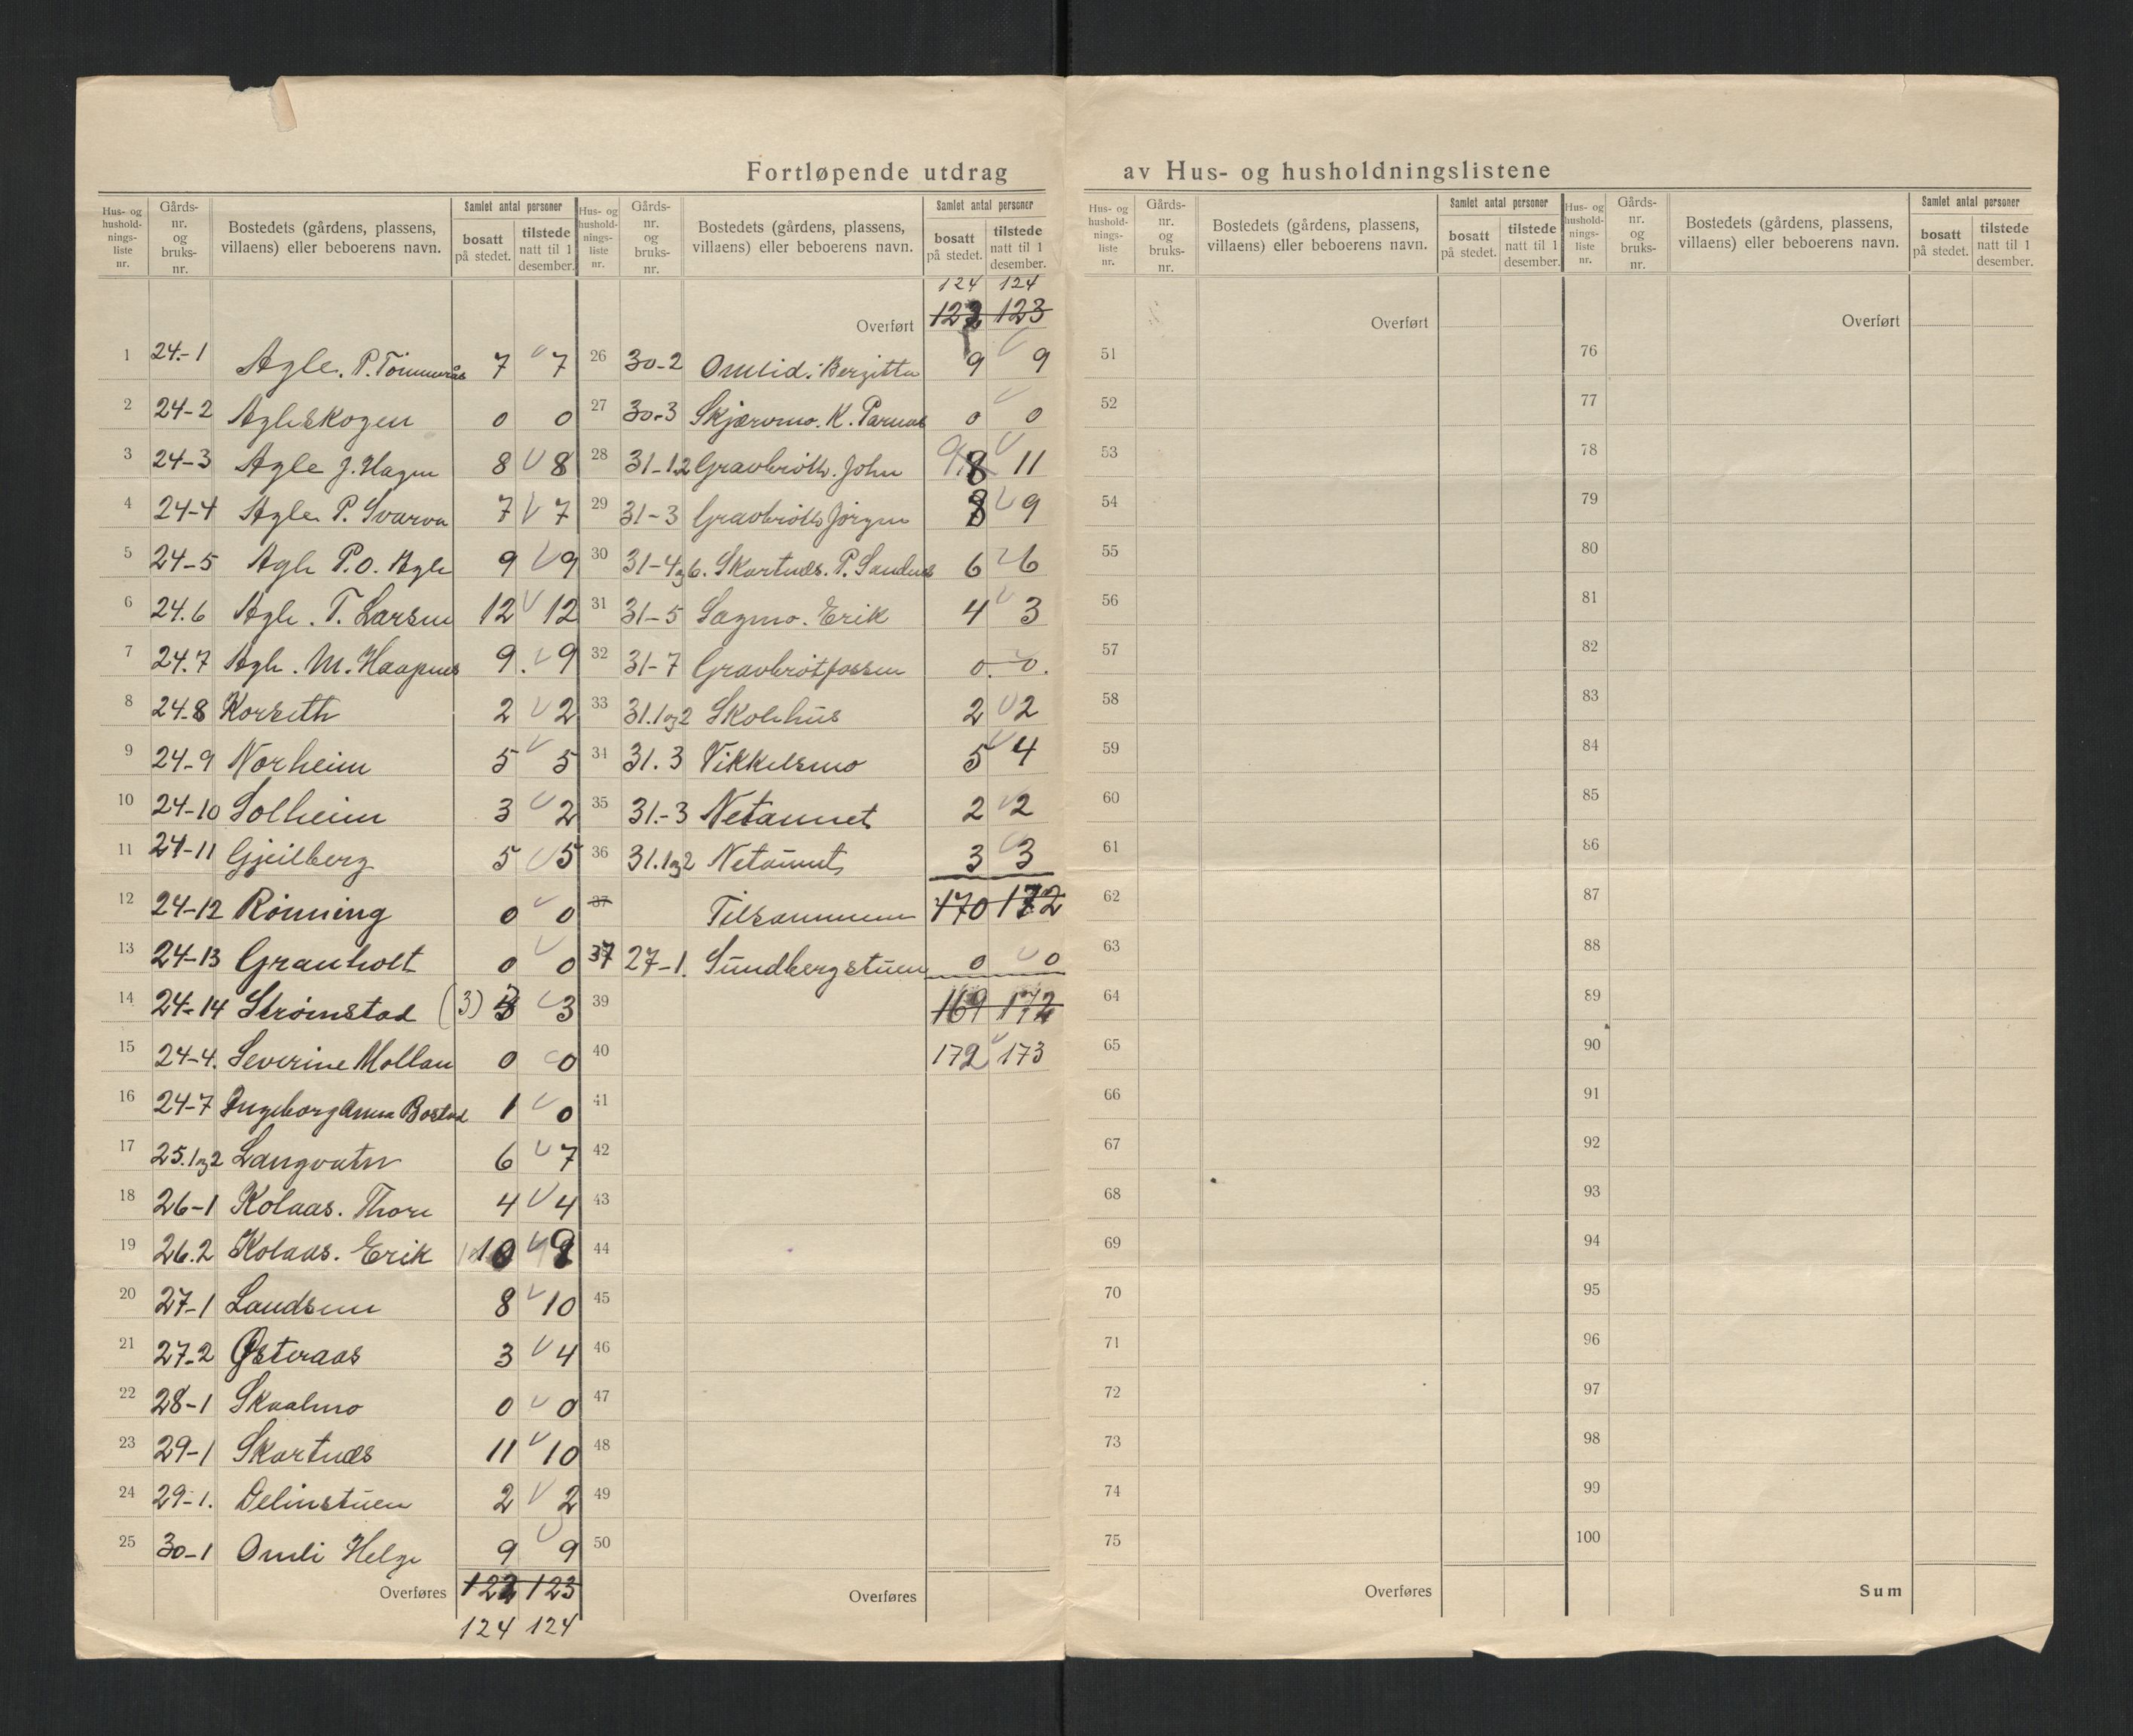 Fortløpende utdrag av Hus- og husholdningslistene
Hus- og hushold-nings-liste nr. Gårds-nr. og bruks-nr. Bostedets (gårdens, plassens, villaens) eller beboerens navn. Samlet antal personer bosatt på stedet. tilstede natt til 1 desember.
1 24.-1 Agle. P. Tömmerås 7 7
2 24-2 Agleskogen 0 0
3 24-3 Agle J. Hagen 8 8
4 24-4 Agle P. Svarva 7 7
5 24-5 Agle P.O. Agle 9 9
6 24.6 Agle. T. Larsen 12 12
7 24.7 Agle. M. Haapnes 9. 9
8 24.8 Korseth 2 2
9 24-9 Norheim 5 5
10 24-10 Solheim 3 2
11 24-11 Gjeilberg 5 5
12 24-12 Rönning 0 0
13 24-13 Granholt 0 0
14 24-14 Strömstad (3) 3 3
15 24-4. Severine Mollan 0 0
16 24-7 Ingeborg Anna Bostad 1 0
17 25.1og2 Langvatn 6 7
18 26-1 Kolaas. Thore 4 4
19 26.2 Kolaas. Erik 10 9
20 27-1 Landsem 8 10
21 27-2 Østeraas 3 4
22 28-1 Skaalmo 0 0
23 29-1 Skartnæs 11 10
24 29-1. Delinstuen 2 2
25 30-1 Omli Helge 9 9
Overføres 122 123
124 124
Hus- og hushold-nings-liste nr. Gårds-nr. og bruks-nr. Bostedets (gårdens, plassens, villaens) eller beboerens navn. Samlet antal personer bosatt på stedet. tilstede natt til 1 desember.
124 124
Overført 122 123
26 30-2 Omlid. Bergitta 9 9
27 30-3 Skjærvmo. K. Parnas 0 0
28 31-1.2 Gravbröth. John 9 8 11
29 31-3 Gravbröth Jörgen 8 9
30 31-4og6. Skartnæs. P. Sandnes 6 6
31 31-5 Sagmo. Erik 4 3
32 31-7 Gravbrötfossen 0. 0.
33 31.1og2 Skolehus 2 2
34 31.3 Vikkelsmo 5 4
35 31.-3 Netannet 2 2
36 31.1og2 Netannet 3 3
37 Tilsammen 170 172
37 27-1. Sundbergstuen 0 0
39 169 172
40 172 173
41
42
43
44
45
46
47
48
49
50
Overføres
Hus- og hushold-nings-liste nr. Gårds-nr. og bruks-nr. Bostedets (gårdens, plassens, villaens) eller beboerens navn. Samlet antal personer bosatt på stedet. tilstede natt til 1 desember.
Overført
51
52
53
54
55
56
57
58
59
60
61
62
63
64
65
66
67
68
69
70
71
72
73
74
75
Overføres
Hus- og hushold-nings-liste nr. Gårds-nr. og bruks-nr. Bostedets (gårdens, plassens, villaens) eller beboerens navn. Samlet antal personer bosatt på stedet. tilstede natt til 1 desember.
Overført
76
77
78
79
80
81
82
83
84
85
86
87
88
89
90
91
92
93
94
95
96
97
98
99
100
Sum